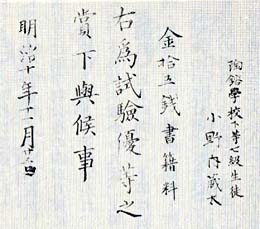 陶鎔學校下等七級生徒
小野内蔵太
金拾五銭書籍料
右為試驗優等之
賞下與候事
明治十年十二月廿五日